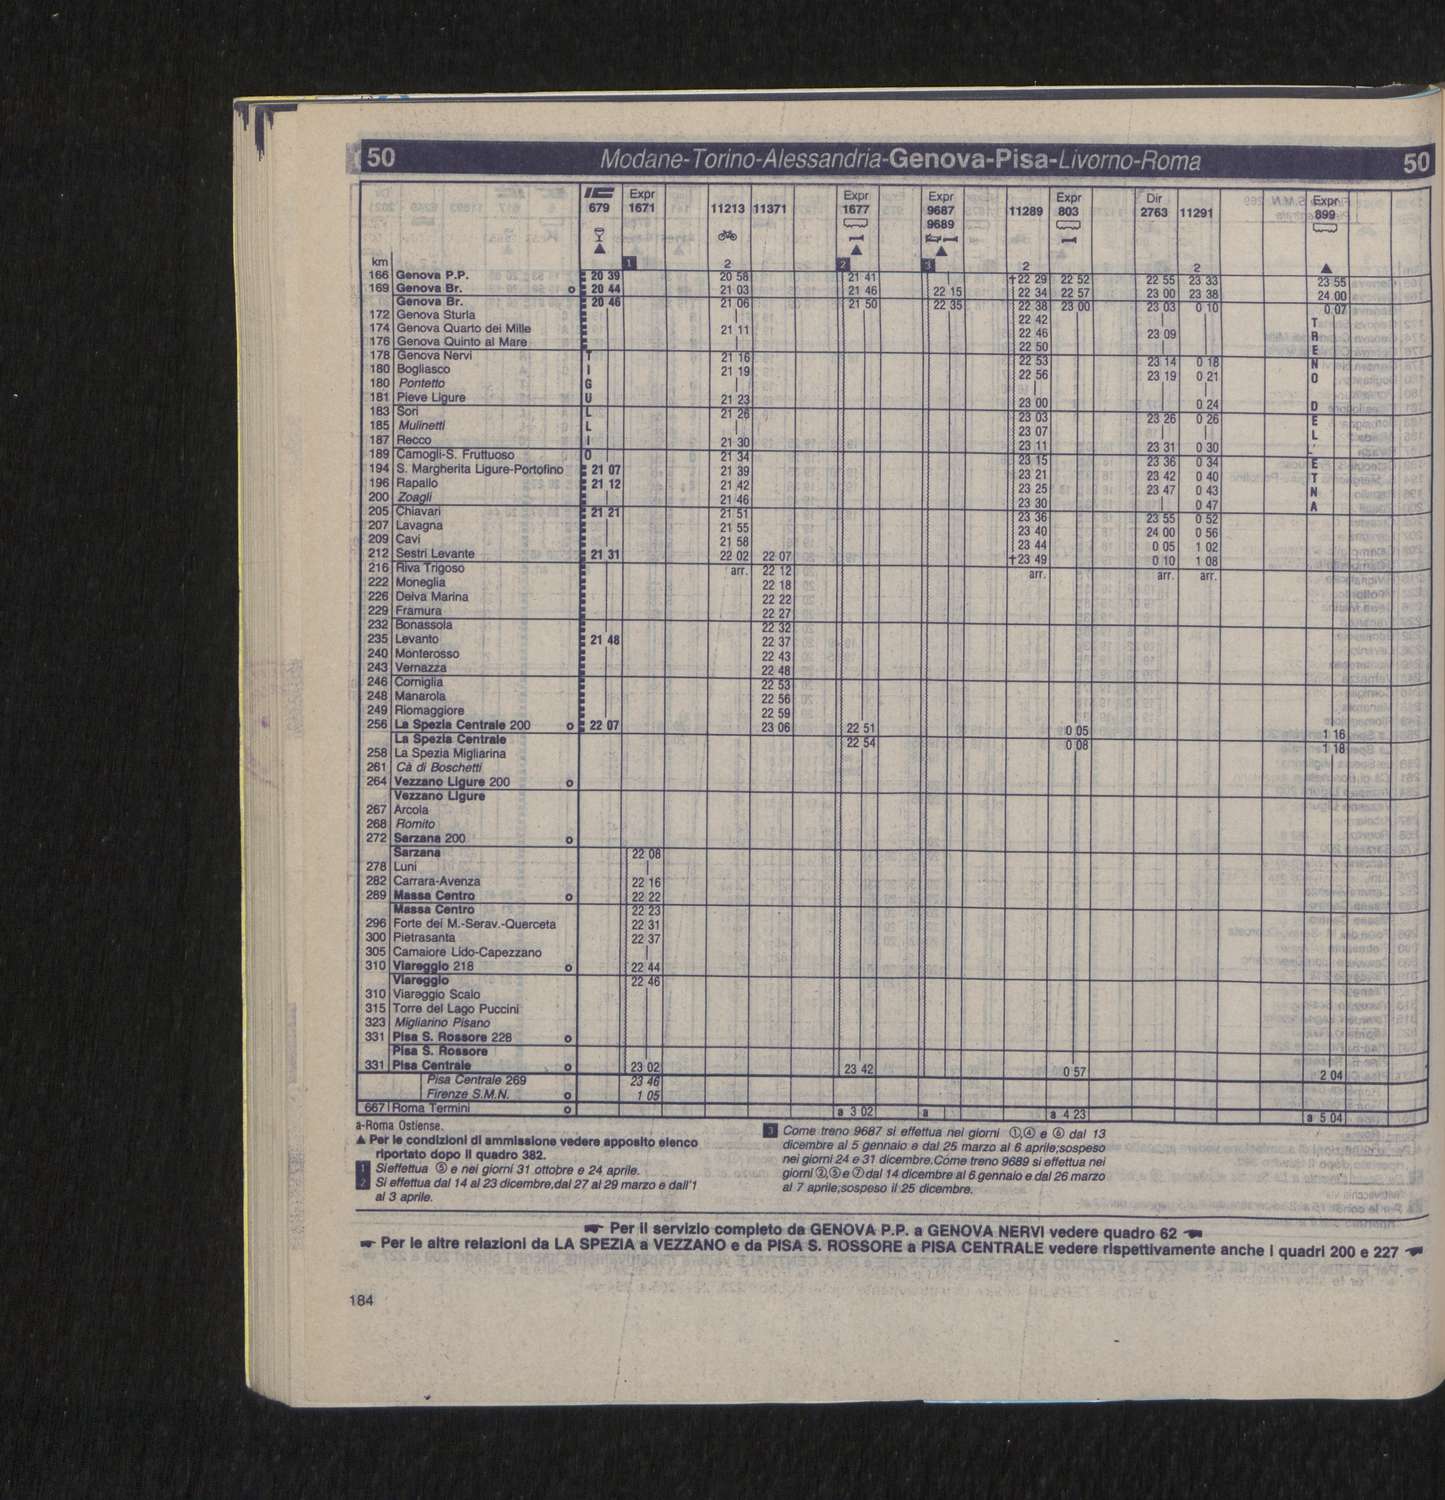 50 Modane-Torino-Alessandria-Genova-Pisa-Livorno-Roma 50
IC Expr Expr Expr Expr Dir Expr
679 1671 11213 11371 1677 9687 11289 803 2763 11291 899
9689
km 1 2 2 3 2 2
166 Genova P.P. 20 39 20 58 21 41 †22 29 22 52 22 55 23 33 23 55
169 Genova Br. o 20 44 21 03 21 46 22 15 22 34 22 57 23 00 23 38 24 00
Genova Br. 20 46 21 06 21 50 22 35 22 38 23 00 23 03 0 10 0 07
172 Genova Sturla | | 22 42 | | T
174 Genova Quarto dei Mille 21 11 22 46 23 09 | R
176 Genova Quinto al Mare | 22 50 | | E
178 Genova Nervi T 21 16 22 53 23 14 0 18 N
180 Bogliasco I 21 19 22 56 23 19 0 21 O
180 Pontetto G | | | |
181 Pieve Ligure U 21 23 23 00 | 0 24 D
183 Sori L 21 26 23 03 23 26 0 26 E
185 Mulinetti L | 23 07 | | L
187 Recco I 21 30 23 11 23 31 0 30 L'
189 Camogli-S. Fruttuoso O 21 34 23 15 23 36 0 34 E
194 S. Margherita Ligure-Portofino 21 07 21 39 23 21 23 42 0 40 T
196 Rapallo 21 12 21 42 23 25 23 47 0 43 N
200 Zoagli 21 46 23 30 | 0 47 A
205 Chiavari 21 21 21 51 23 36 23 55 0 52
207 Lavagna 21 55 23 40 24 00 0 56
209 Cavi 21 58 23 44 0 05 1 02
212 Sestri Levante 21 31 22 02 22 07 †23 49 0 10 1 08
216 Riva Trigoso arr. 22 12 arr. arr. arr.
222 Moneglia 22 18
226 Deiva Marina 22 22
229 Framura 22 27
232 Bonassola 22 32
235 Levanto 21 48 22 37
240 Monterosso 22 43
243 Vernazza 22 48
246 Corniglia 22 53
248 Manarola 22 56
249 Riomaggiore 22 59
256 La Spezia Centrale 200 o 22 07 23 06 22 51 0 05 1 16
La Spezia Centrale 22 54 0 08 1 18
258 La Spezia Migliarina
261 Cà di Boschetti
264 Vezzano Ligure 200 o
Vezzano Ligure
267 Arcola
268 Romito
272 Sarzana 200 o
Sarzana 22 08
278 Luni |
282 Carrara-Avenza 22 16
289 Massa Centro o 22 22
Massa Centro 22 23
296 Forte dei M.-Serav.-Querceta 22 31
300 Pietrasanta 22 37
305 Camaiore Lido-Capezzano |
310 Viareggio 218 o 22 44
Viareggio 22 46
310 Viareggio Scalo
315 Torre del Lago Puccini
323 Migliarino Pisano
331 Pisa S. Rossore 228 o
Pisa S. Rossore
331 Pisa Centrale o 23 02 23 42 0 57 2 04
Pisa Centrale 269 23 46
Firenze S.M.N. o 1 05
667 Roma Termini o a 3 02 a a 4 23 a 5 04
a-Roma Ostiense.
▲ Per le condizioni di ammissione vedere apposito elenco
riportato dopo il quadro 382.
1 Si effettua ⑤ e nei giorni 31 ottobre e 24 aprile.
2 Si effettua dal 14 al 23 dicembre,dal 27 al 29 marzo e dall'1
al 3 aprile.
3 Come treno 9687 si effettua nei giorni ①,④ e ⑥ dal 13
dicembre al 5 gennaio e dal 25 marzo al 6 aprile;sospeso
nei giorni 24 e 31 dicembre.Come treno 9689 si effettua nei
giorni ②,⑤ e ⑦ dal 14 dicembre al 6 gennaio e dal 26 marzo
al 7 aprile;sospeso il 25 dicembre.
☛ Per il servizio completo da GENOVA P.P. a GENOVA NERVI vedere quadro 62 ☚
☛ Per le altre relazioni da LA SPEZIA a VEZZANO e da PISA S. ROSSORE a PISA CENTRALE vedere rispettivamente anche i quadri 200 e 227 ☚
184